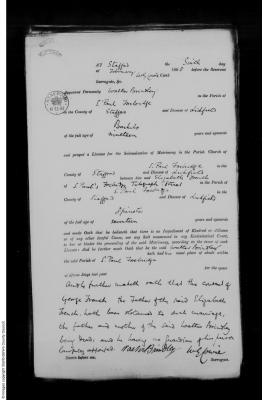 AT Stafford the Sixth day
of February before the Reverend
Surrogate, &c.
Appeared Personally Walter Brindley
of S. Paul Forebridge in the Parish of
in the County of Stafford and Diocese of Lichfield
Bachelor
of the full age of nineteen years and upwards
and prayed a Licence for the Solemnization of Matrimony in the Parish Church
of S. Paul Forebridge in the
County of Stafford and Diocese of Lichfield
between him and Elizabeth French
of S. Paul's Forebridge Telegraph Street in the Parish of
S. Paul Forebridge in the
County of Stafford and Diocese of Lichfield
Spinster
of the full age of seventeen years and upwards
and made Oath that he believeth that there is no Impediment of Kindred or Alliance
or of any other lawful Cause, nor any Suit commenced in any Ecclesiastical Court,
to bar or hinder the proceeding of the said Matrimony, according to the tenor of such
Licence: And he further made Oath that he the said Walter Brindley
hath had his usual place of abode within
the said Parish of S. Paul Forebridge
for the space
of fifteen days last past
And he further maketh oath that the consent of
George French the Father of the said Elizabeth
French hath been obtained to such marriage,
the father and mother of the said Walter Brindley
being dead, and he having no guardian of his person
lawfully appointed. Walter Brindley
Sworn before me,
Surrogate.